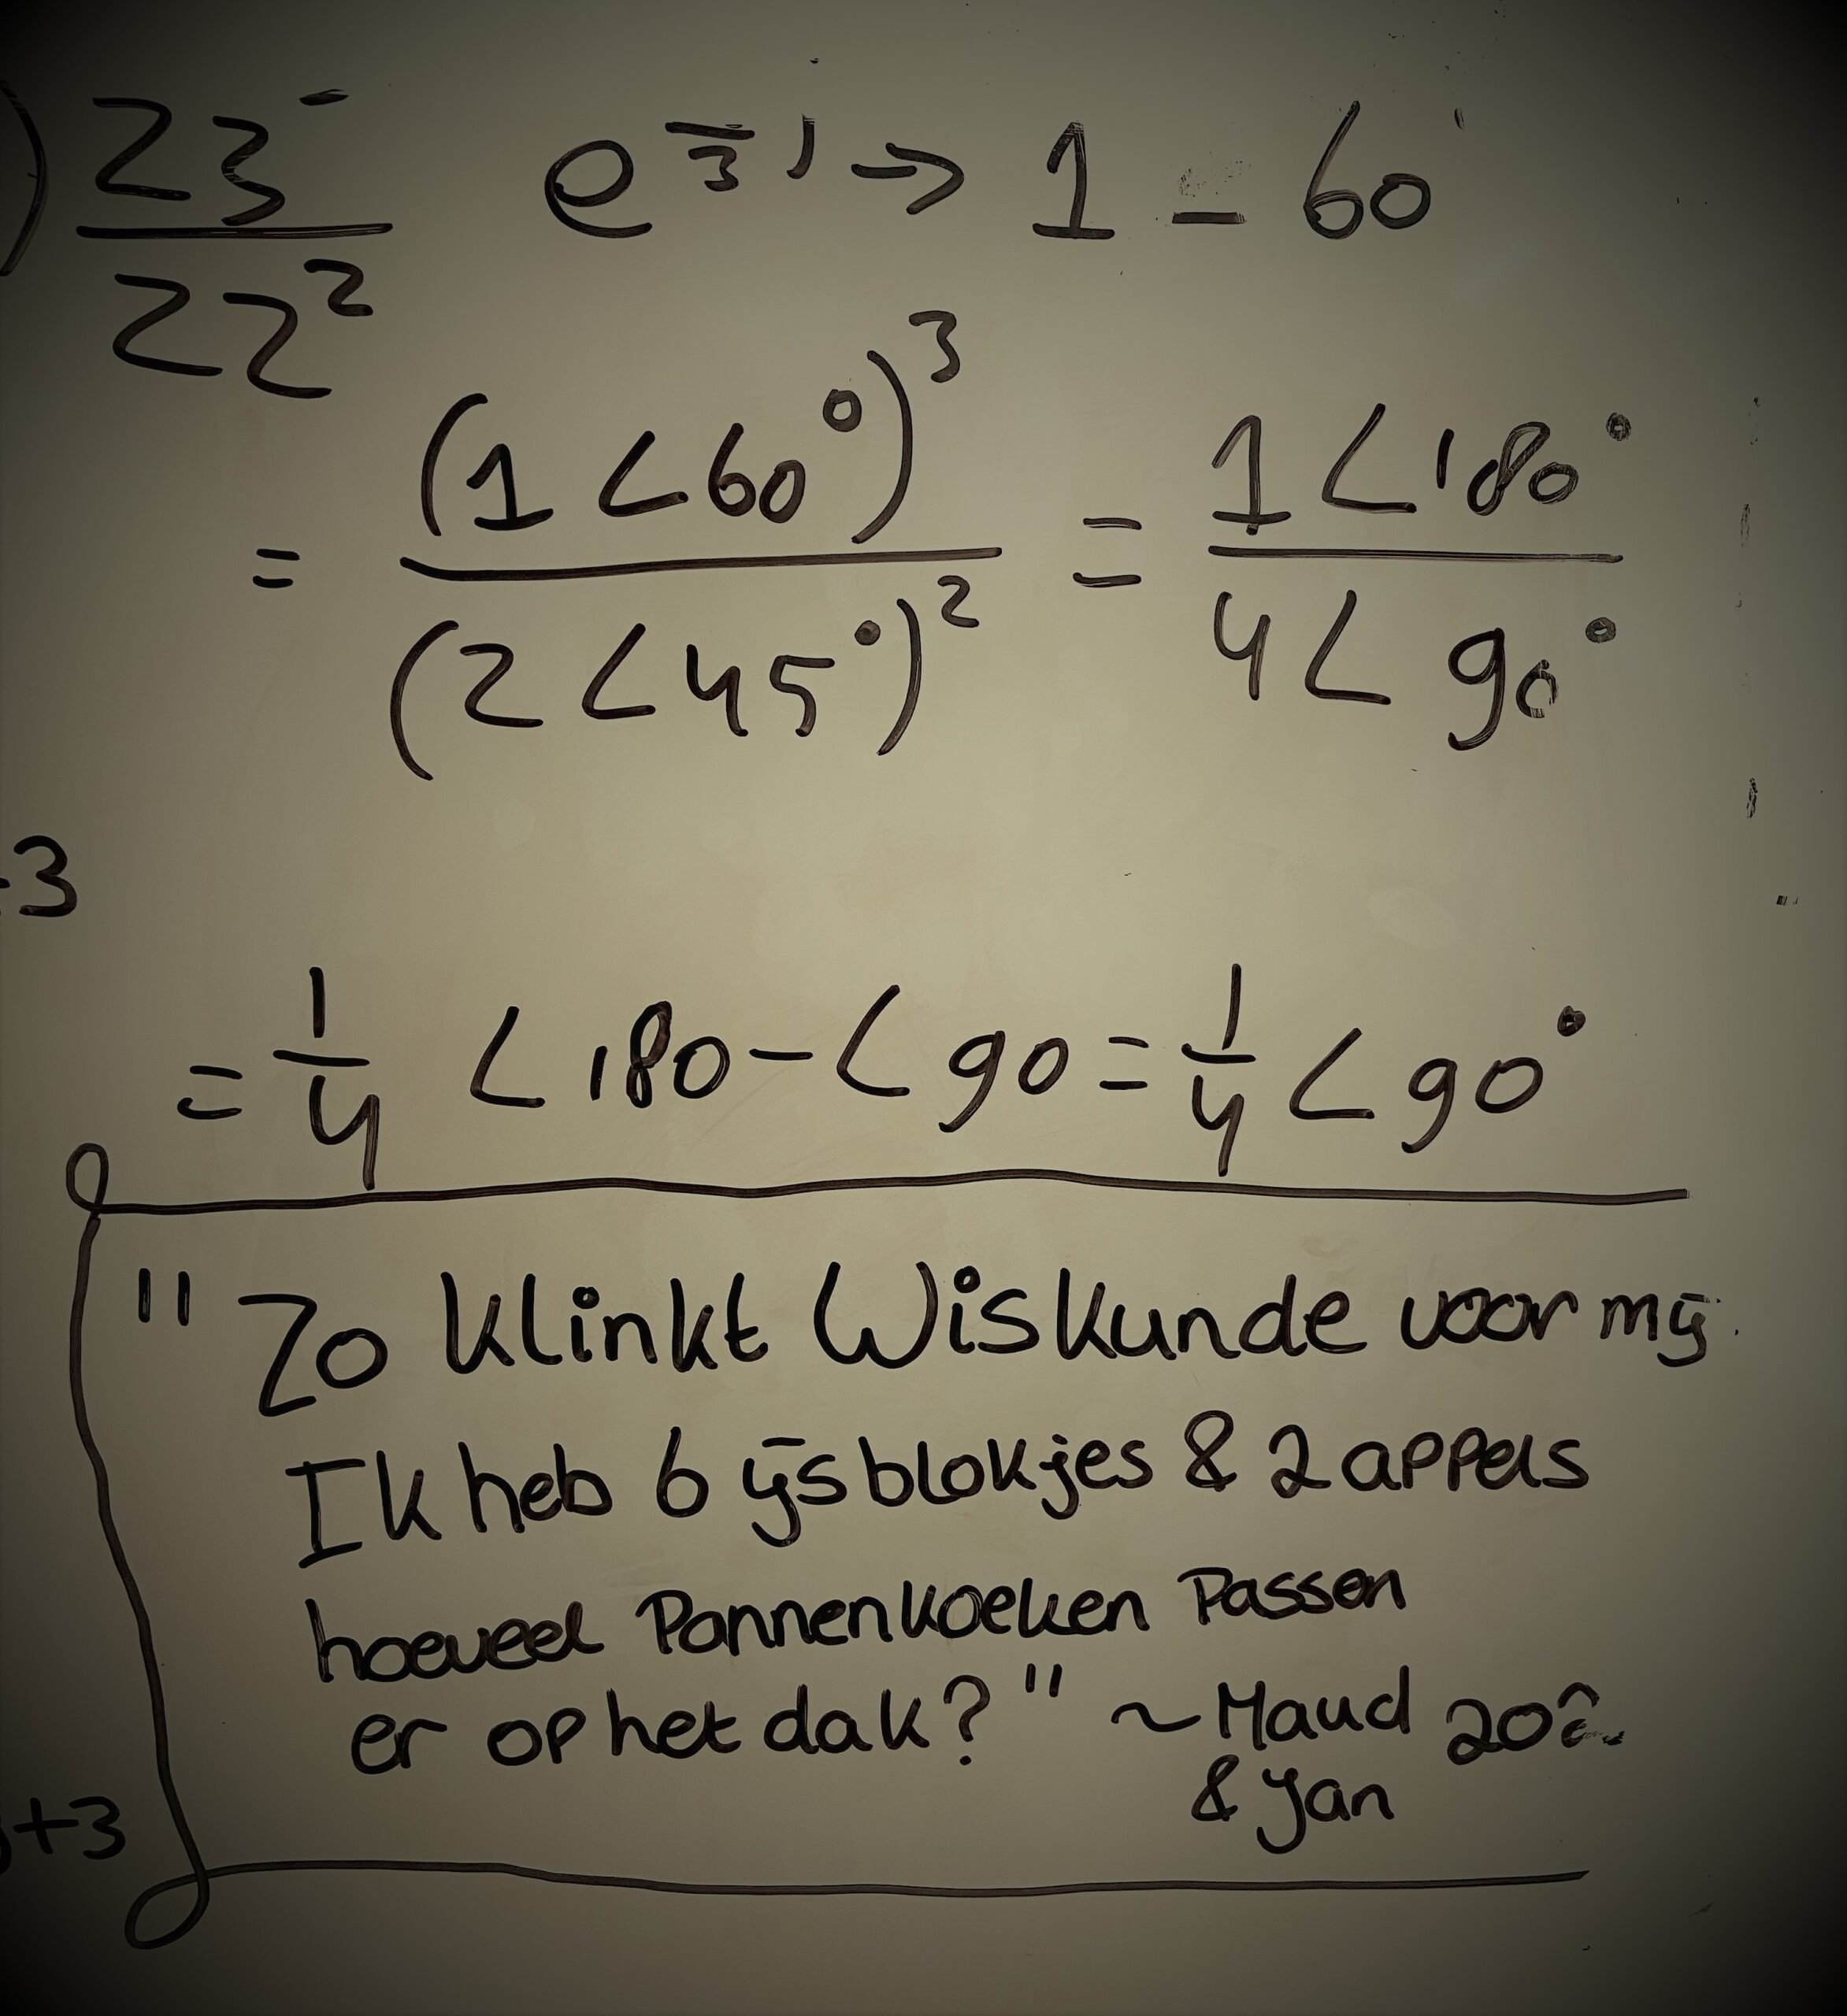 ) Z3
Z2²
e^π/3 j -> 1 - 60
= (1 < 60°)³ / (2 < 45°)² = 1 < 180° / 4 < 90°
-3
= 1/4 < 180 - < 90 = 1/4 < 90°
" Zo klinkt Wiskunde voor mij.
Ik heb 6 ijsblokjes & 2 appels
hoeveel Pannenkoeken Passen
er op het dak? " ~ Maud
& Jan
+3